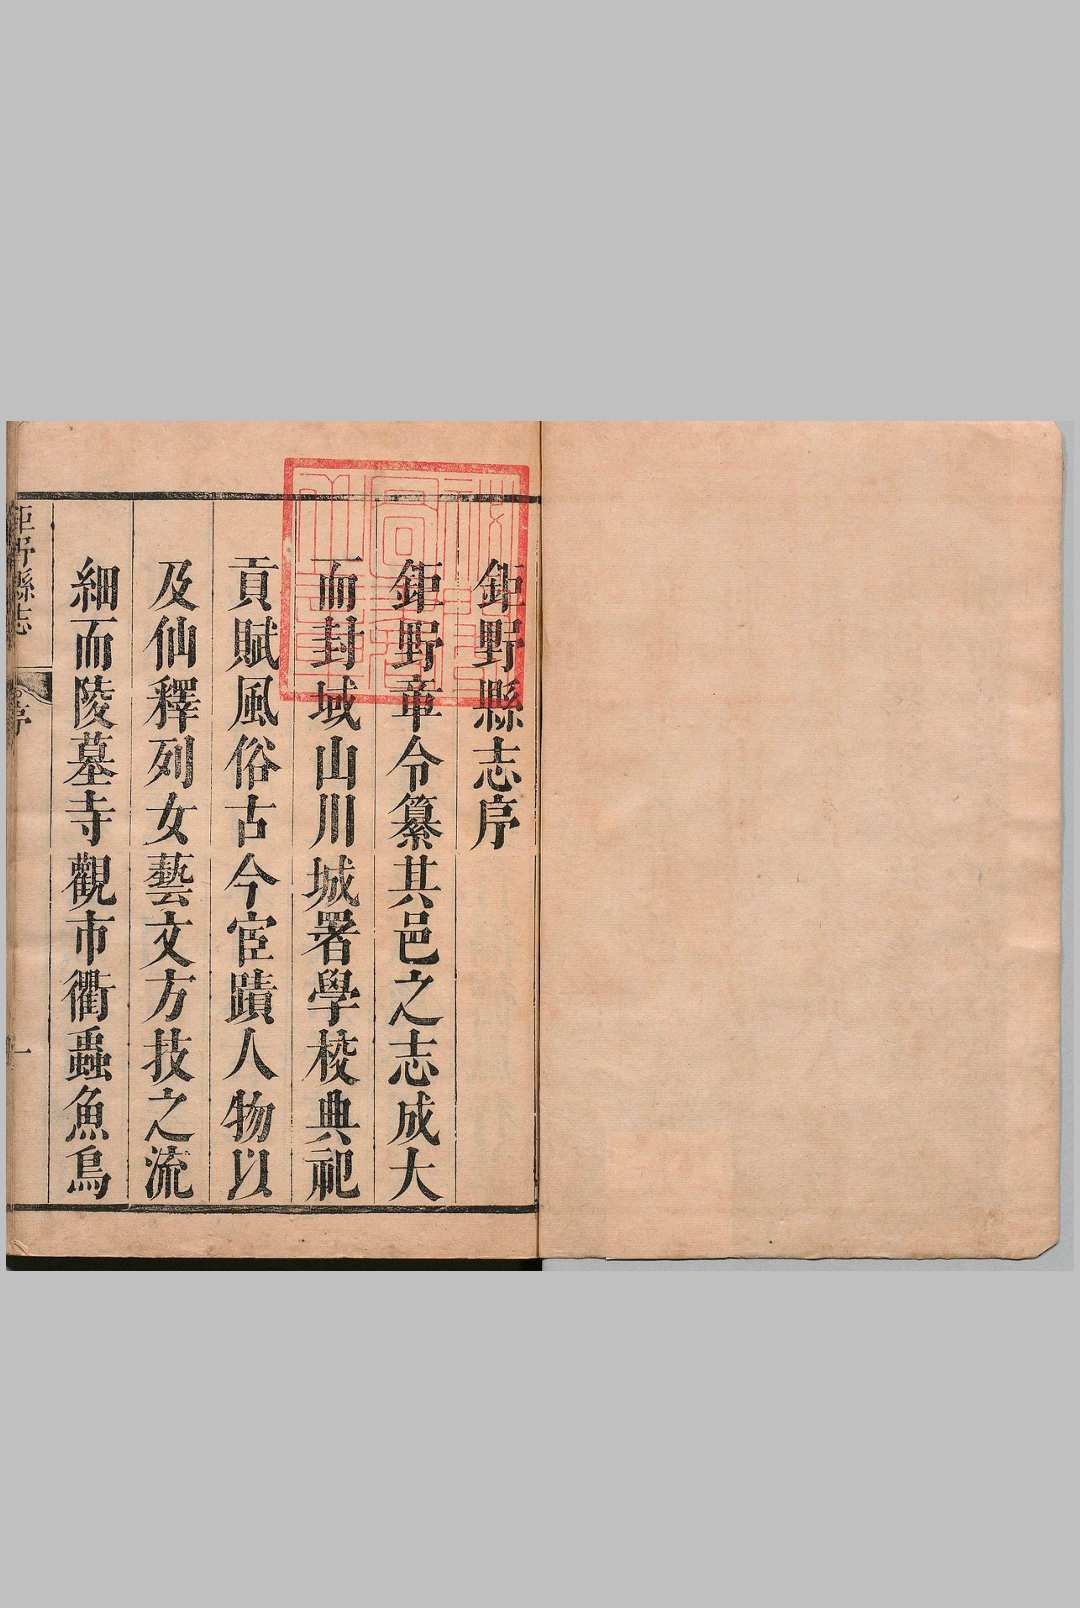 鉅野縣志序
鉅野章令纂其邑之志成大
而封域山川城署學校典祀
貢賦風俗古今宦蹟人物以
及仙釋列女藝文方技之流
細而陵墓寺觀市衢蟲魚鳥
鉅野縣志
序
一